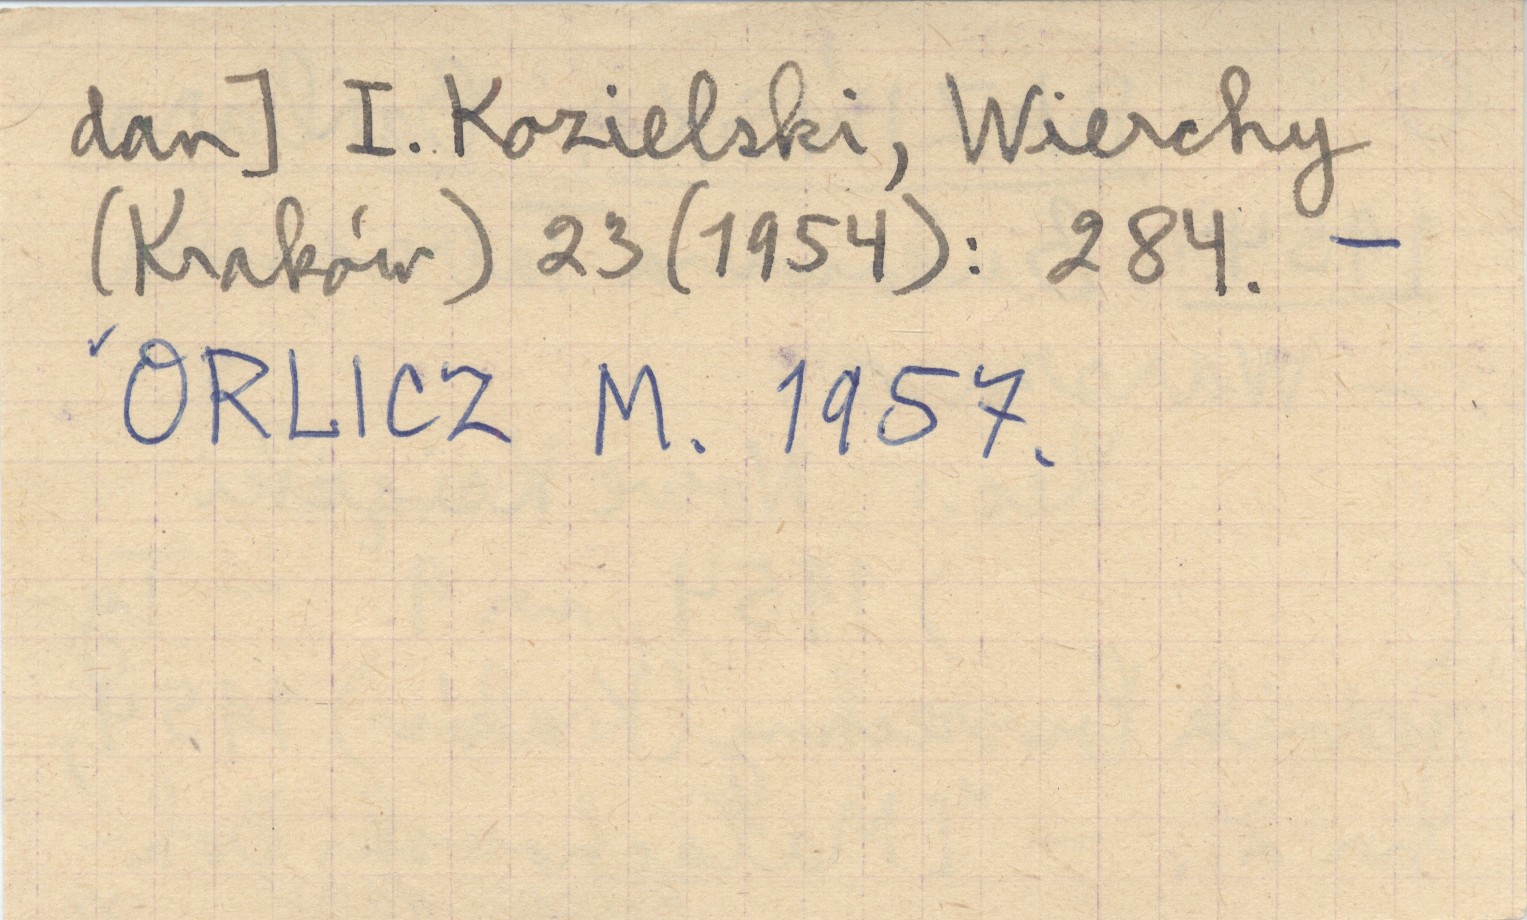 dan] I. Kozielski, Wierchy
(Kraków) 23 (1954): 284. –
✓ ORLICZ M. 1957.